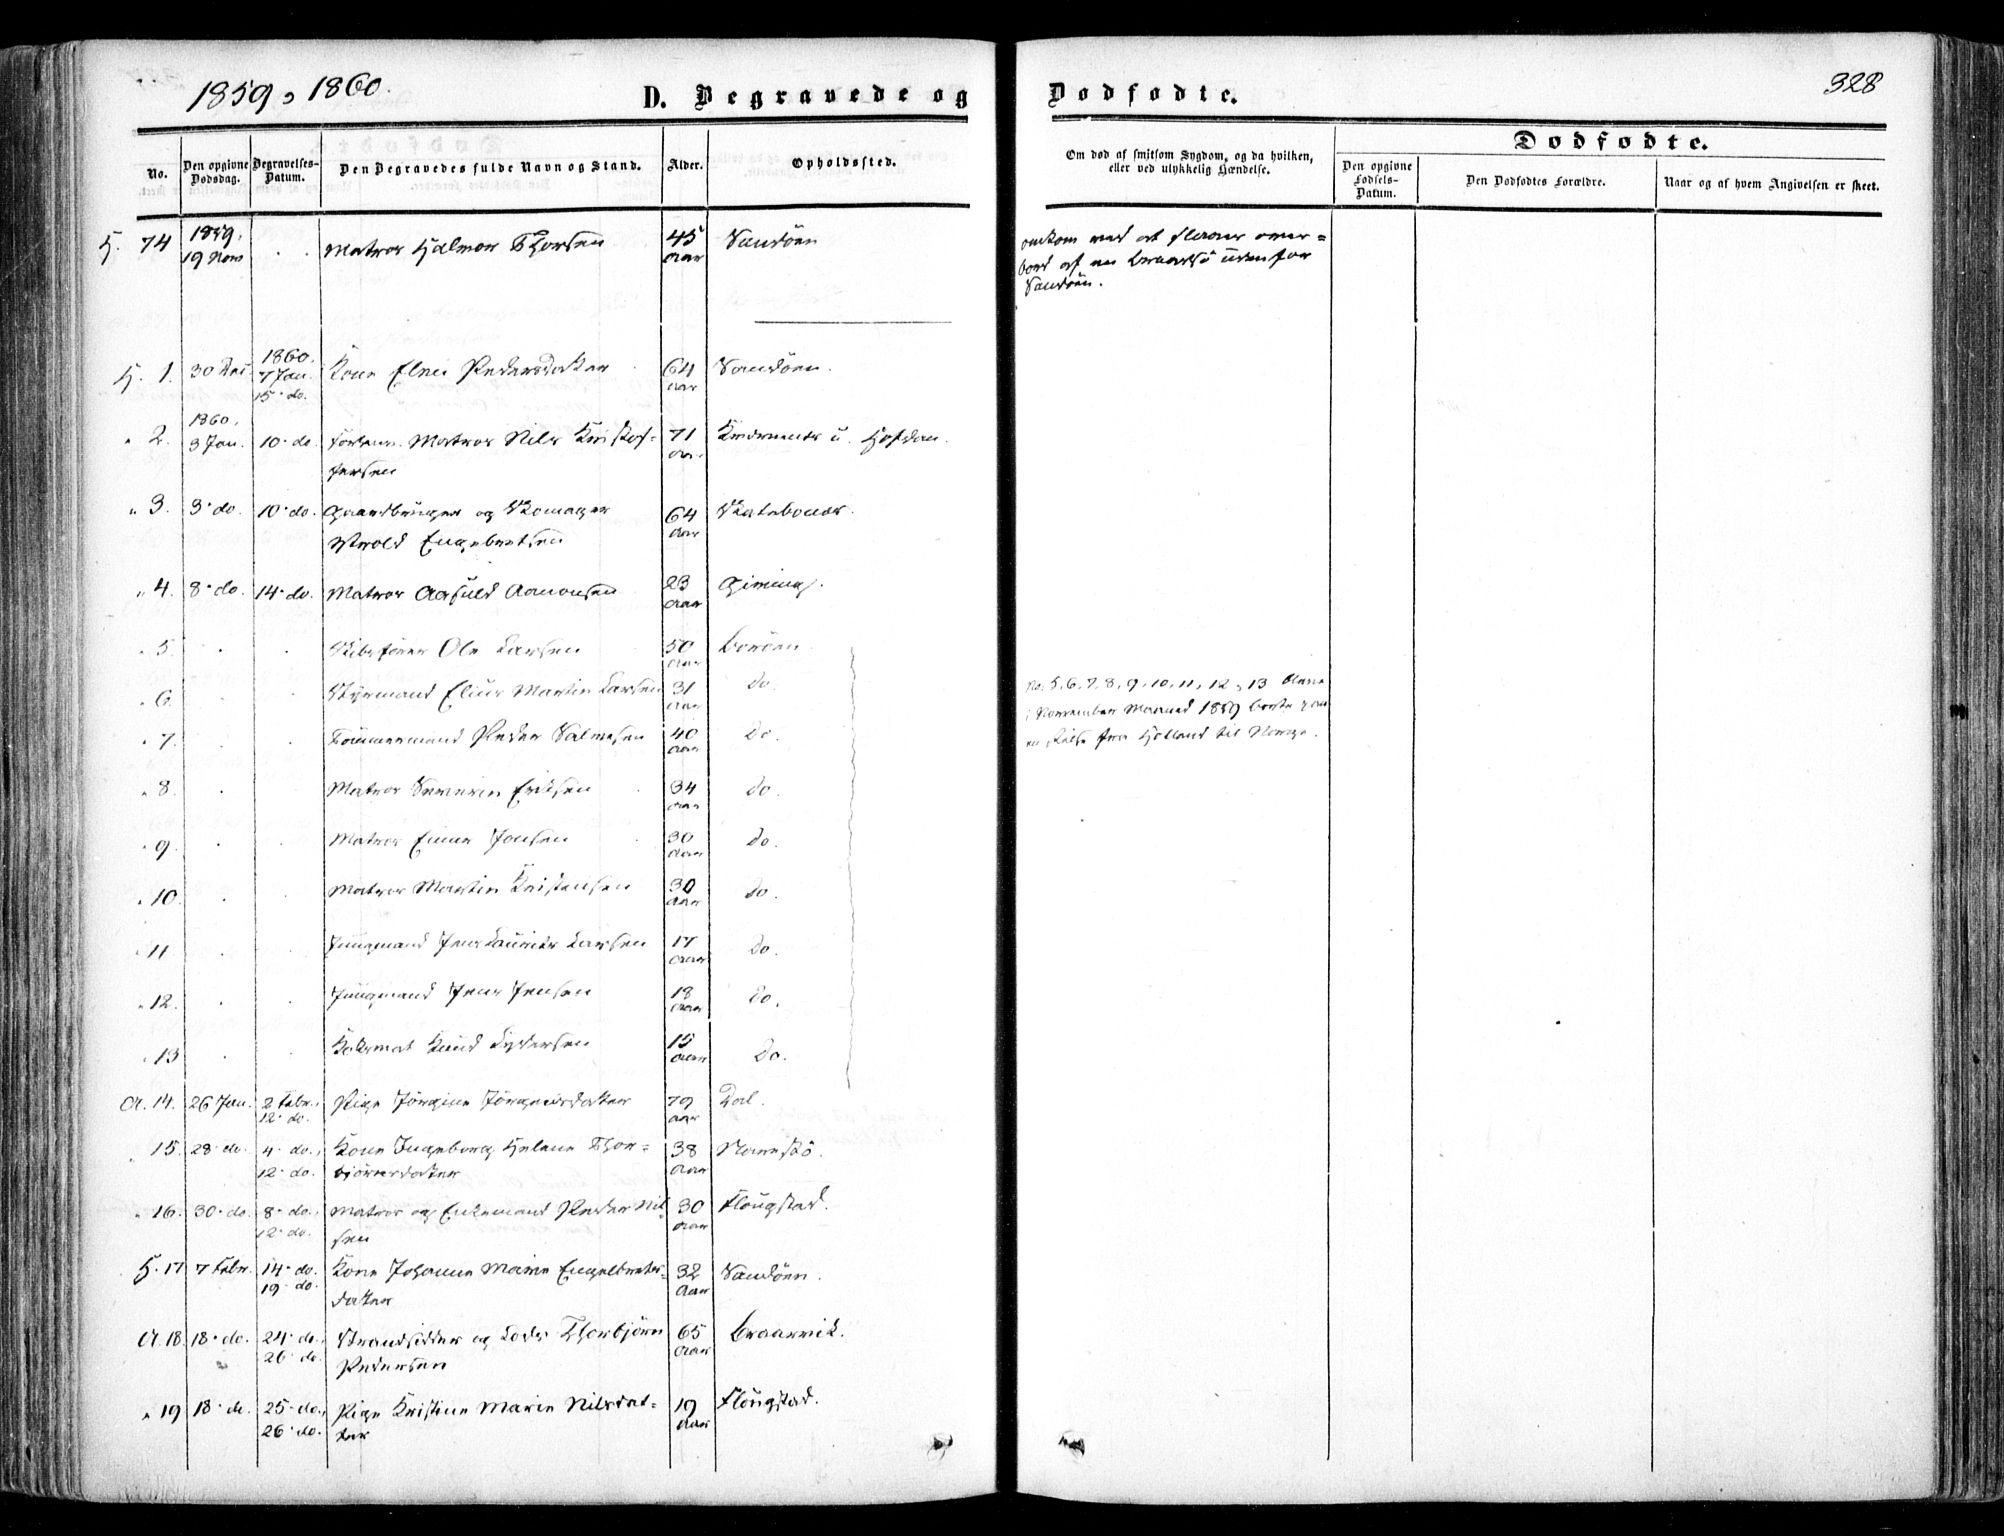 1859 & 1860.
D. Begravede og Dødfødte.
328
No.
Den opgivne Dødsdag.
Begravelses-Datum.
Den Begravedes fulde Navn og Stand.
Alder.
Opholdssted.
Om død af smitsom Sygdom, og da hvilken,
eller ved ulykkelig Hændelse.
Dødfødte.
Den opgivne Fødsels-Datum.
Den Dødfødtes Forældre.
Naar og af hvem Angivelsen er skeet.
H. 74 1859. 19 Nov Matros Halvor Thorsen 45 Aar Sandöen
omkom ved at slaaes over=
bord af en Braadsö udenfor
Sandöen.
H. 1. 30 Dec. 1860. 7 Jan. 15. do. Kone Elen Pedersdatter 64 Aar Sandöen.
" 2. 1860. 3 Jan. 10. do. Matros Nils Kristof=
fersen 71 Aar
" 3. 3. do. 10. do. Gaardbruger og Skomager
Engebretsen 64 Aar
" 4. 8. do. 14. do. Matros Aasuld Aanonsen 23 Aar Giving.
" 5. Skibsförer Ole Larsen 50 Aar Boröen
" 6. Styrmand Martin Larsen 31 Aar Do.
" 7. Tömmermand Peder Salvesen 40 Aar Do.
No. 5, 6, 7, 8, 9, 10, 11, 12, 13 bleve
i November Maaned 1859 borte paa
en Reise fra Holland til Norge.
" 8. Matros Severin Eriksen 34 Aar Do.
" 9. Matros Jonsen 30 Aar Do.
" 10. Matros Martin Kristensen 30 Aar Do.
" 11. Jungmand Jens Laurits Larsen 17 Aar Do.
" 12. Jungmand Jens Jensen 18 Aar Do.
" 13 Koksmat Knud 15 Aar Do.
A. 14. 26 Jan. 2 Febr., 12. do. Pige Jörgine Jörgensdatter 79 Aar Dal.
" 15. 28. do. 4. do., 12. do. Kone Ingeborg Helene Thor=
björnsdatter 38 Aar Narestö.
" 16. 30. do. 8. do., 12. do. Matros og Enkemand Peder Nil=
sen 30 Aar Flougstad.
H. 17 7 Febr. 14. do. 19. do. Kone Johanne Marie Engelbrets=
datter 32 Aar Sandöen.
A. 18. 18. do. 24. do., 26. do. Strandsidder og Lods Thorbjörn
Pedersen 65 Aar Braarvik.
" 19 18. do. 25. do., 26. do. Pige Kristine Marie Nilsdat=
ter 19 Aar Flougstad.